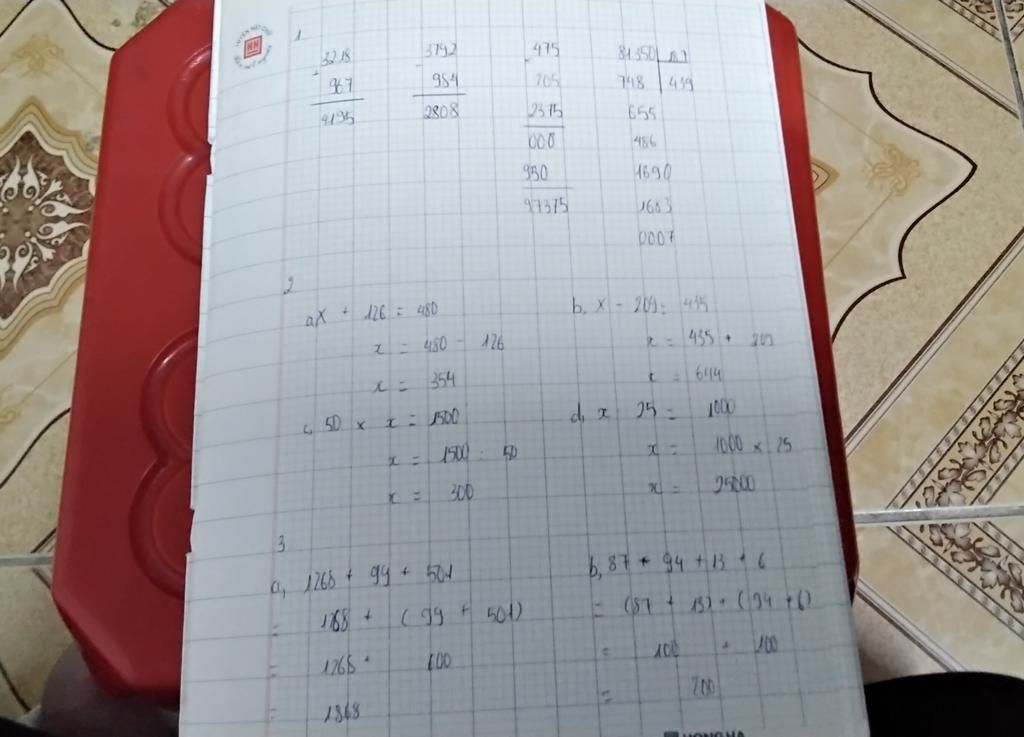 1
3218
+
967
4195
3792
-
984
2808
475
×
205
2375
000
950
97375
81350
187
748
439
655
486
1690
1683
0007
2
a, x + 126 = 480
x = 480 - 126
x = 354
b, x - 209 = 435
x = 435 + 209
x = 644
c, 50 × x = 1500
x = 1500 : 50
x = 300
d, x 25 = 1000
x = 1000 × 25
x = 25000
3
a, 1268 + 99 + 501
= 1268 + (99 + 501)
= 1268 + 600
= 1868
b, 87 + 94 + 13 + 6
= (87 + 13) + (94 + 6)
= 100 + 100
= 200
HONG HA